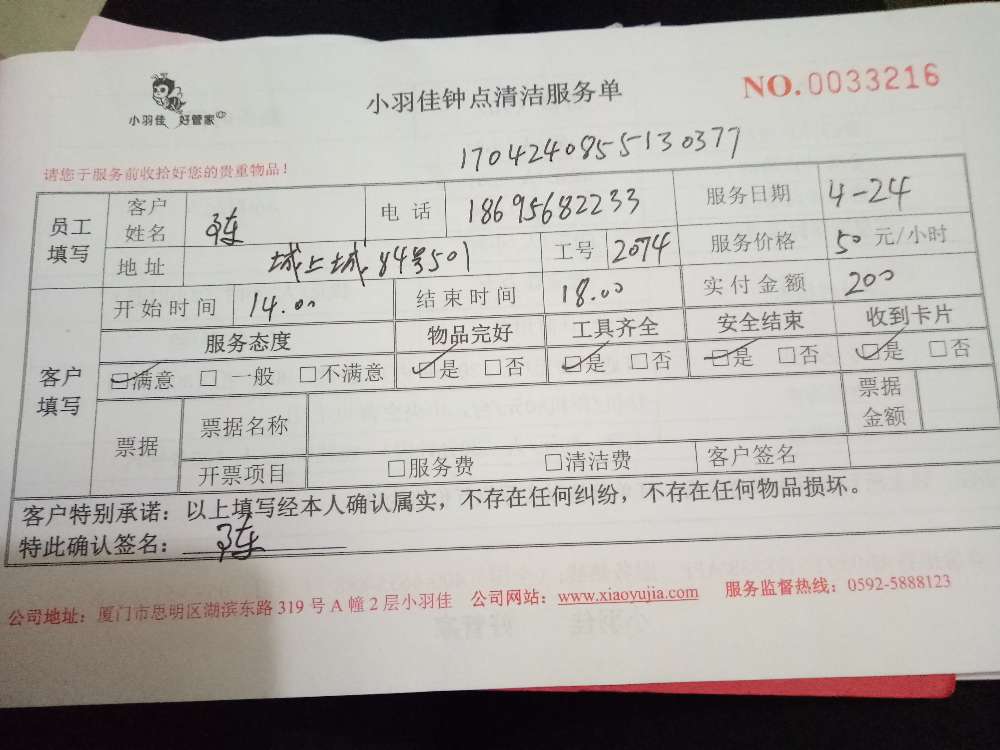 小羽佳 好管家
小羽佳钟点清洁服务单
NO.0033216
1704240855130377
请您于服务前收拾好您的贵重物品！
员工填写 客户姓名 陈 电话 18695682233 服务日期 4-24
地址 城上城84号501 工号 2074 服务价格 50 元/小时
客户填写 开始时间 14.00 结束时间 18.00 实付金额 200
服务态度 物品完好 工具齐全 安全结束 收到卡片
☑满意 □一般 □不满意 ☑是 □否 ☑是 □否 ☑是 □否 ☑是 □否
票据 票据名称 票据金额
开票项目 □服务费 □清洁费 客户签名
客户特别承诺：以上填写经本人确认属实，不存在任何纠纷，不存在任何物品损坏。
特此确认签名：陈
公司地址：厦门市思明区湖滨东路 319 号 A 幢 2 层小羽佳 公司网站：www.xiaoyujia.com 服务监督热线：0592-5888123